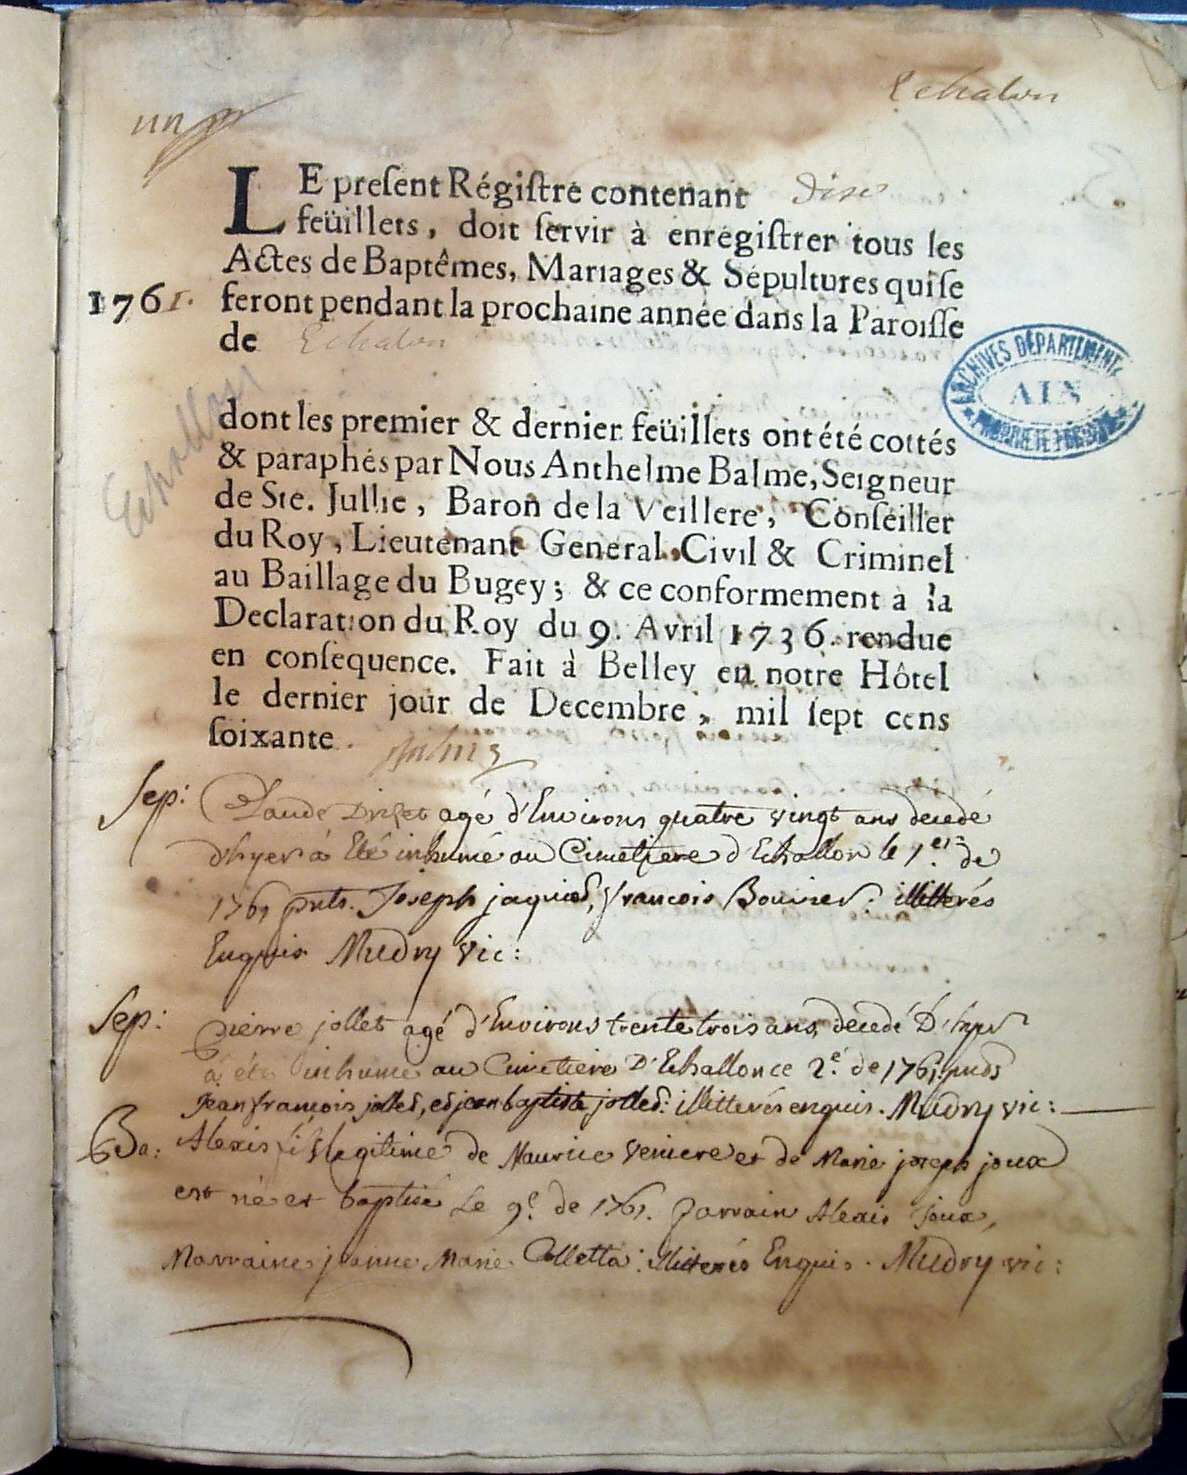 Echalon
un
LE preſent Régiſtre contenant Dix
feüillets, doit ſervir à enregiſtrer tous les
Actes de Baptêmes, Mariages & Sépultures qui ſe
1761. feront pendant la prochaine année dans la Paroiſſe
de Echalon
ARCHIVES DÉPARTEMENT
AIN
PROPRIÉTÉ PUBLIQUE
Echallon
dont les premier & dernier feüillets ont été cottés
& paraphés par Nous Anthelme Balme, Seigneur
de Ste. Jullie, Baron de la Veillere, Conſeiller
du Roy, Lieutenant General Civil & Criminel
au Baillage du Bugey; & ce conformement à la
Declaration du Roy du 9. Avril 1736. rendue
en conſequence. Fait à Belley en notre Hôtel
le dernier jour de Decembre, mil ſept cens
ſoixante. Balme
Sep: Claude agé d'Environs quatre vingt ans decedé
d'hyer a Eté inhumé au Cimetiere d'Echallon le 1.er de
1761 pnts. Joseph jaquiod, francois Bouvier. illitterés
Enquis Mudry vic:
Sep: Pierre jollet agé d'Environs trente trois ans, decedé D'hyer
a été inhumé au Cimetiere D'Echallon ce 2.e de 1761 pnds
Jean francois jolled, et jean baptiste jolled. illitterés enquis. Mudry vic:
Ba: Alexis fils legitime de Maurice Veniere et de Marie joseph joux
est né et baptisé Le 9.e de 1761. parrain Alexis joux,
Marraine jeanne Marie Colletta: illitterés Enquis. Mudry vic: